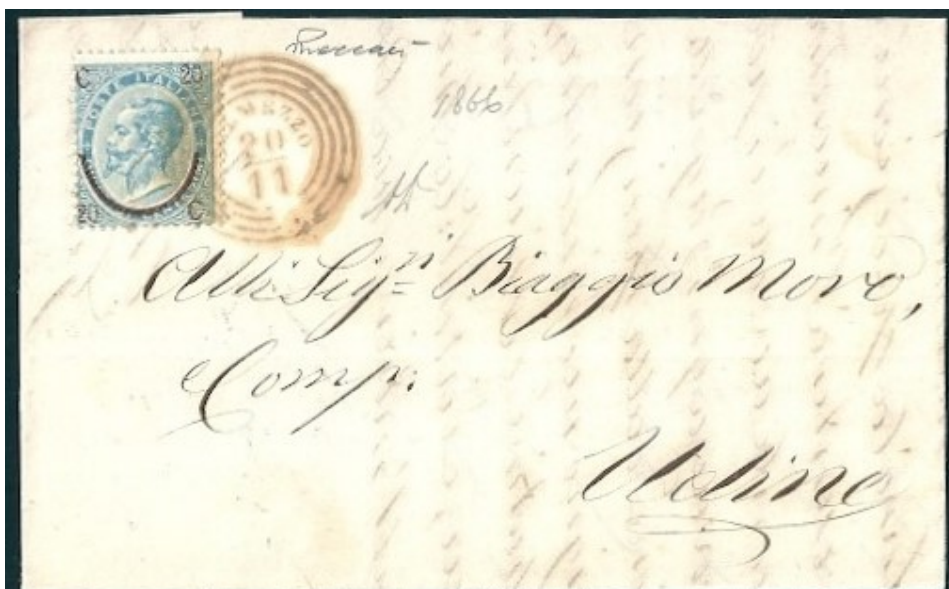 C 20
POSTE ITALIANE
20 C
MEZZO
20
11
1866
Alli Sign.ri Biaggio Moro,
Comp.
Udine